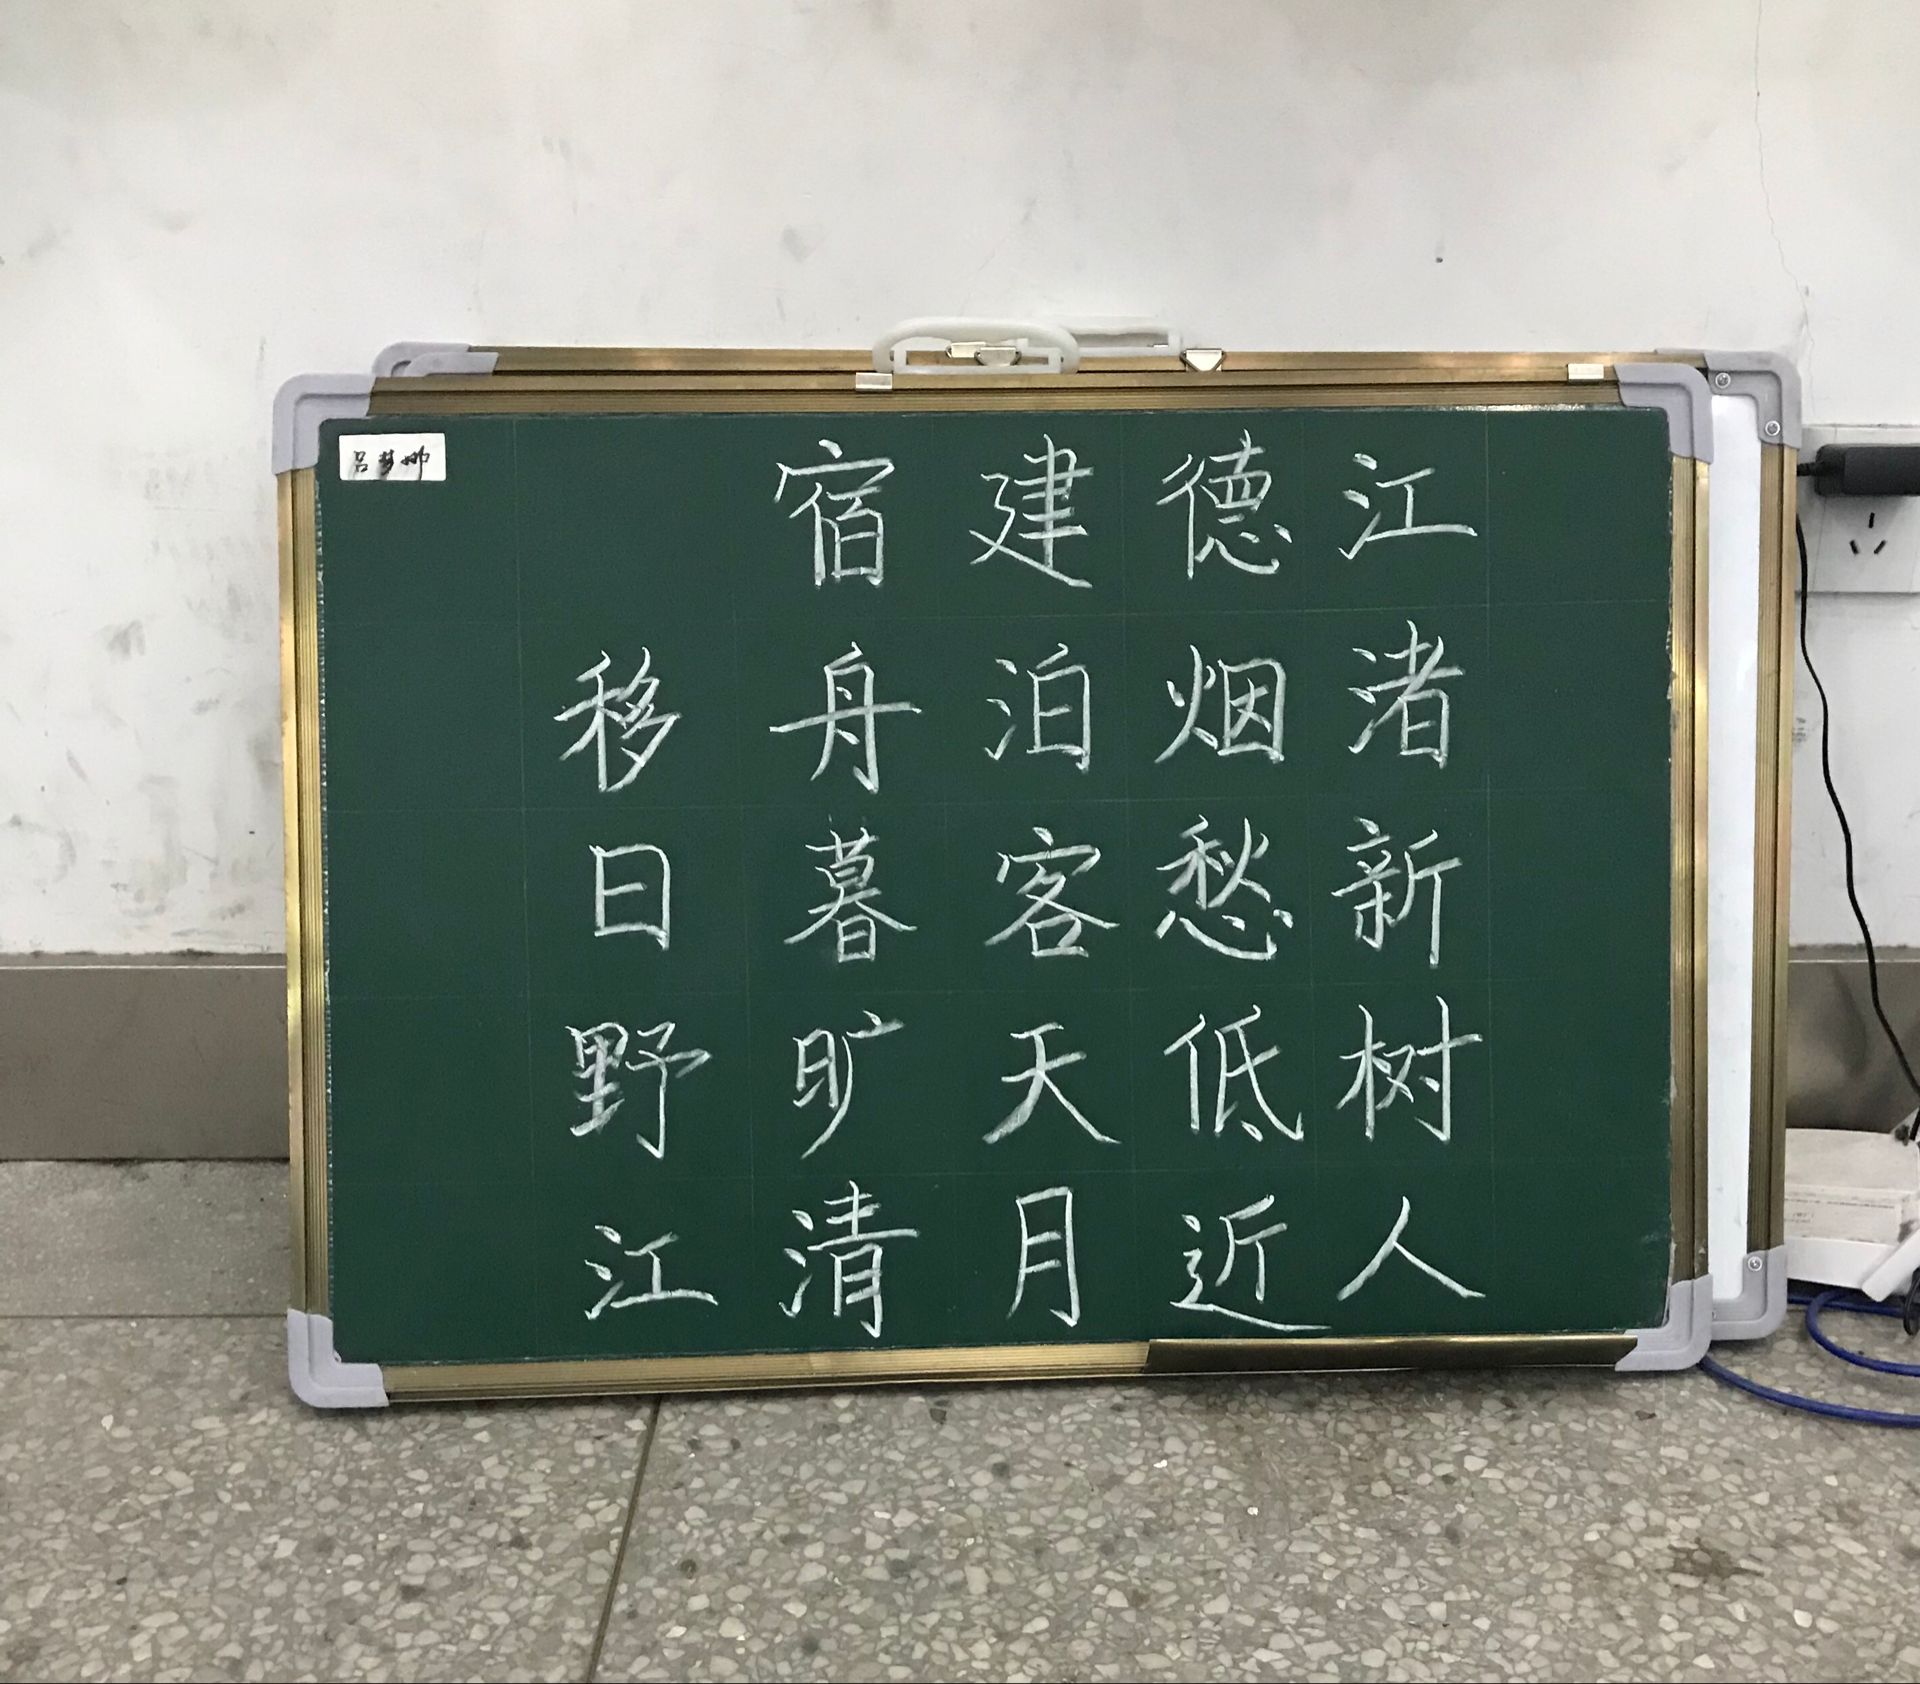 吕梦娜
宿建德江
移舟泊烟渚
日暮客愁新
野旷天低树
江清月近人